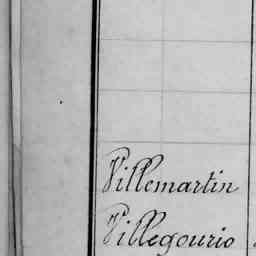 Villemartin
Villegourio